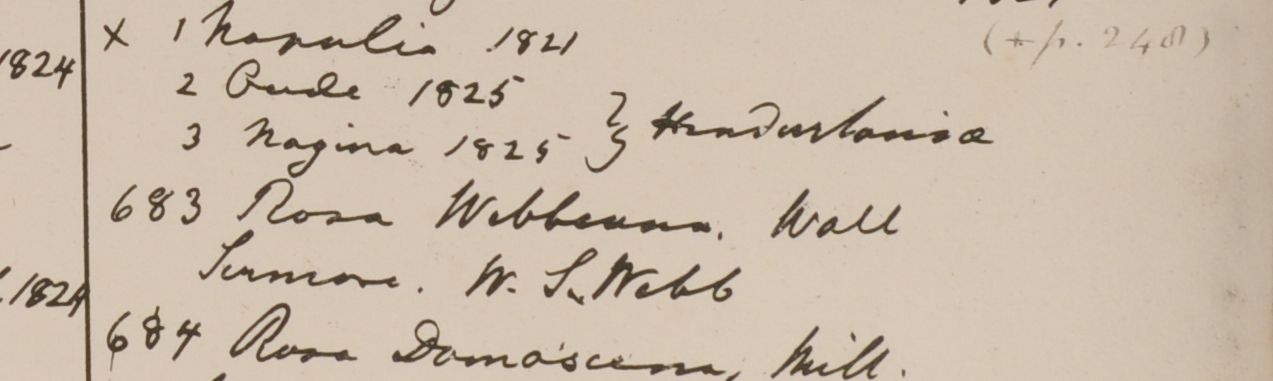 x 1 Napalia 1821
(+ p. 248)
1824
2 Oude 1825
3 Nagina 1825 } Hindustaniae
683 Rosa Webbeana. Wall
Sirmore. W. S. Webb
1824
684 Rosa Damascena, Mill.